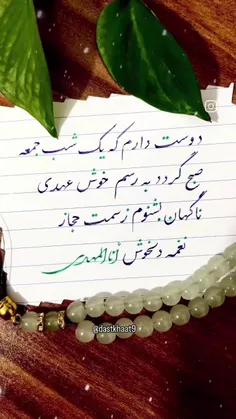 دوست دارم که یک شب جمعه
صبح گردد به رسم خوش عهدی
ناگهان بشنوم ز سمت حجاز
نغمه دلخوش اناالمهدی
@dastkhaat9